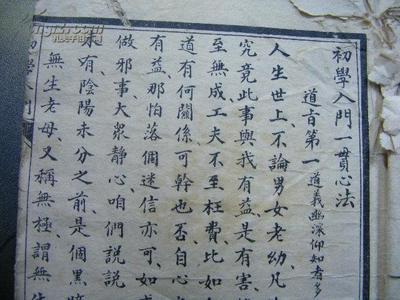 初學入門一貫心法
道旨第一 道義幽深仰如者多
人生世上不論男女老幼凡
究竟此事與我有益是有害
至無成工夫不至枉費比如
道有何關係可幹也否自心
有益那怕落個迷信亦可如
做邪事大衆靜心咱們說說
未有陰陽未分之前是個黑
無生老母又稱無極謂無
初學入門